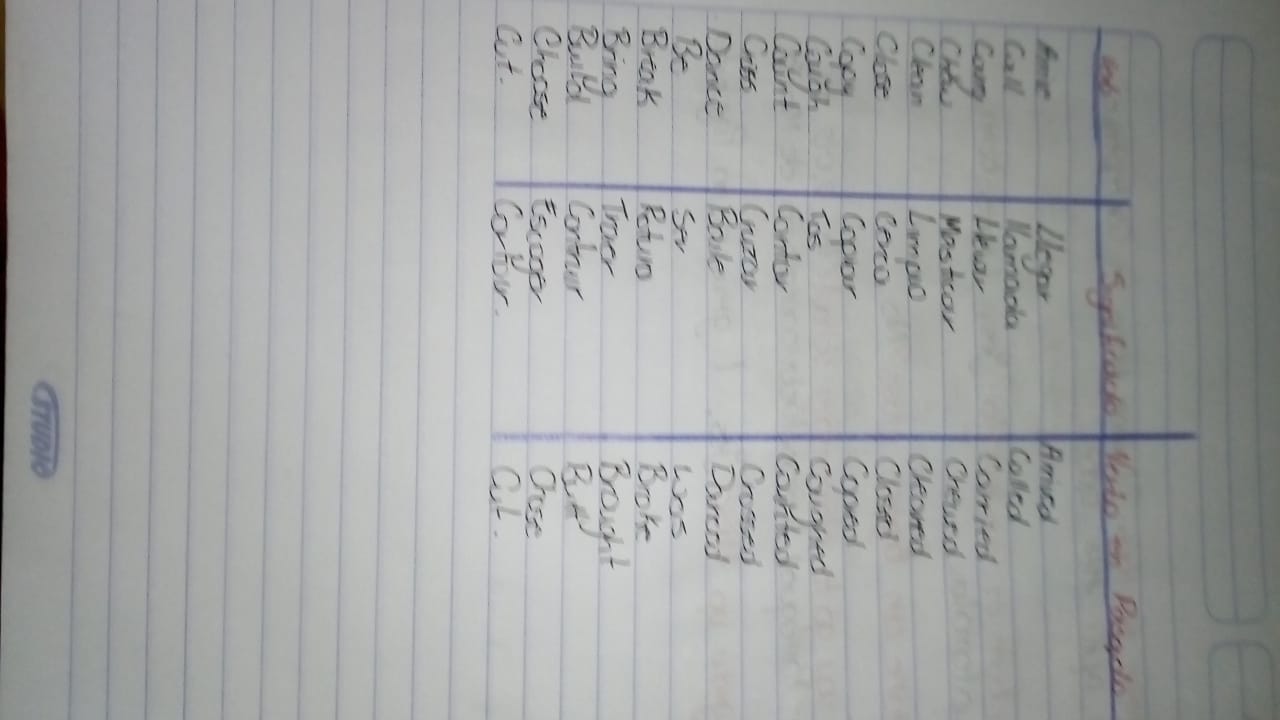 verb Significado Verbo en Pasado
Arrive Llegar Arrived
Call Llamada Called
Carry Llevar Carried
Chew Masticar Chewed
Clean Limpio Cleaned
Close Cerca Closed
Copy Copiar Copied
Cough Tos Coughed
Count Contar Counted
Cross Cruzar Crossed
Dance Baile Danced
Be Ser Was
Break Broke
Bring Traer Brought
Build Built
Choose Escoger Chose
Cut. Cortar. Cut.
STUDIO